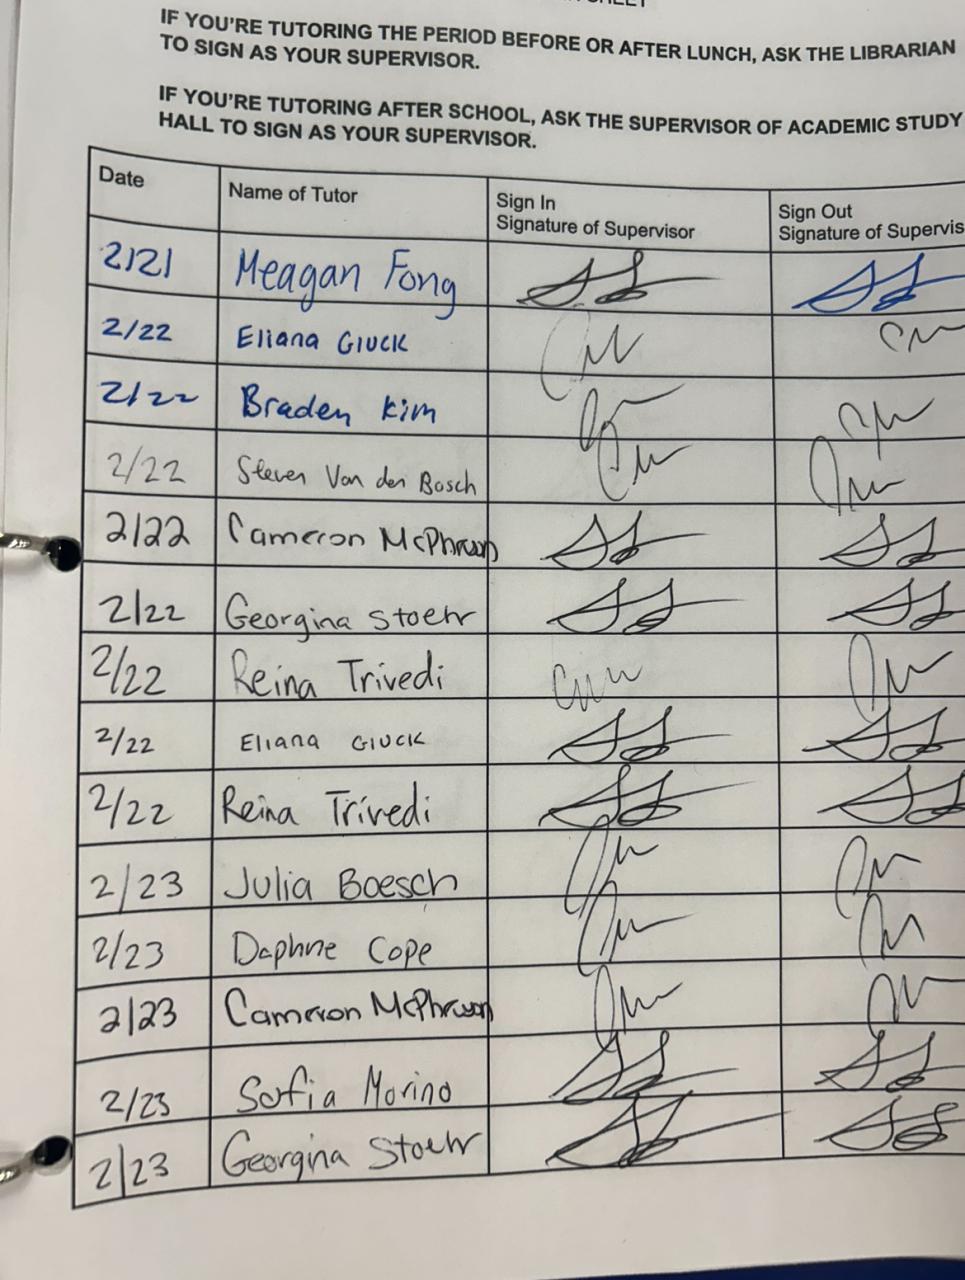 IF YOU'RE TUTORING THE PERIOD BEFORE OR AFTER LUNCH, ASK THE LIBRARIAN
TO SIGN AS YOUR SUPERVISOR.
IF YOU'RE TUTORING AFTER SCHOOL, ASK THE SUPERVISOR OF ACADEMIC STUDY
HALL TO SIGN AS YOUR SUPERVISOR.
Date Name of Tutor Sign In Sign Out
Signature of Supervisor Signature of Supervis
2/21 Meagan Fong
2/22 Eliana Gluck
2/22 Braden Kim
2/22 Steven Van den Bosch
2/22 Cameron McPherson
2/22 Georgina Stoehr
2/22 Reina Trivedi
2/22 Eliana Gluck
2/22 Reina Trivedi
2/23 Julia Boesch
2/23 Daphne Cope
2/23 Cameron McPherson
2/23 Sofia Morino
2/23 Georgina Stoehr